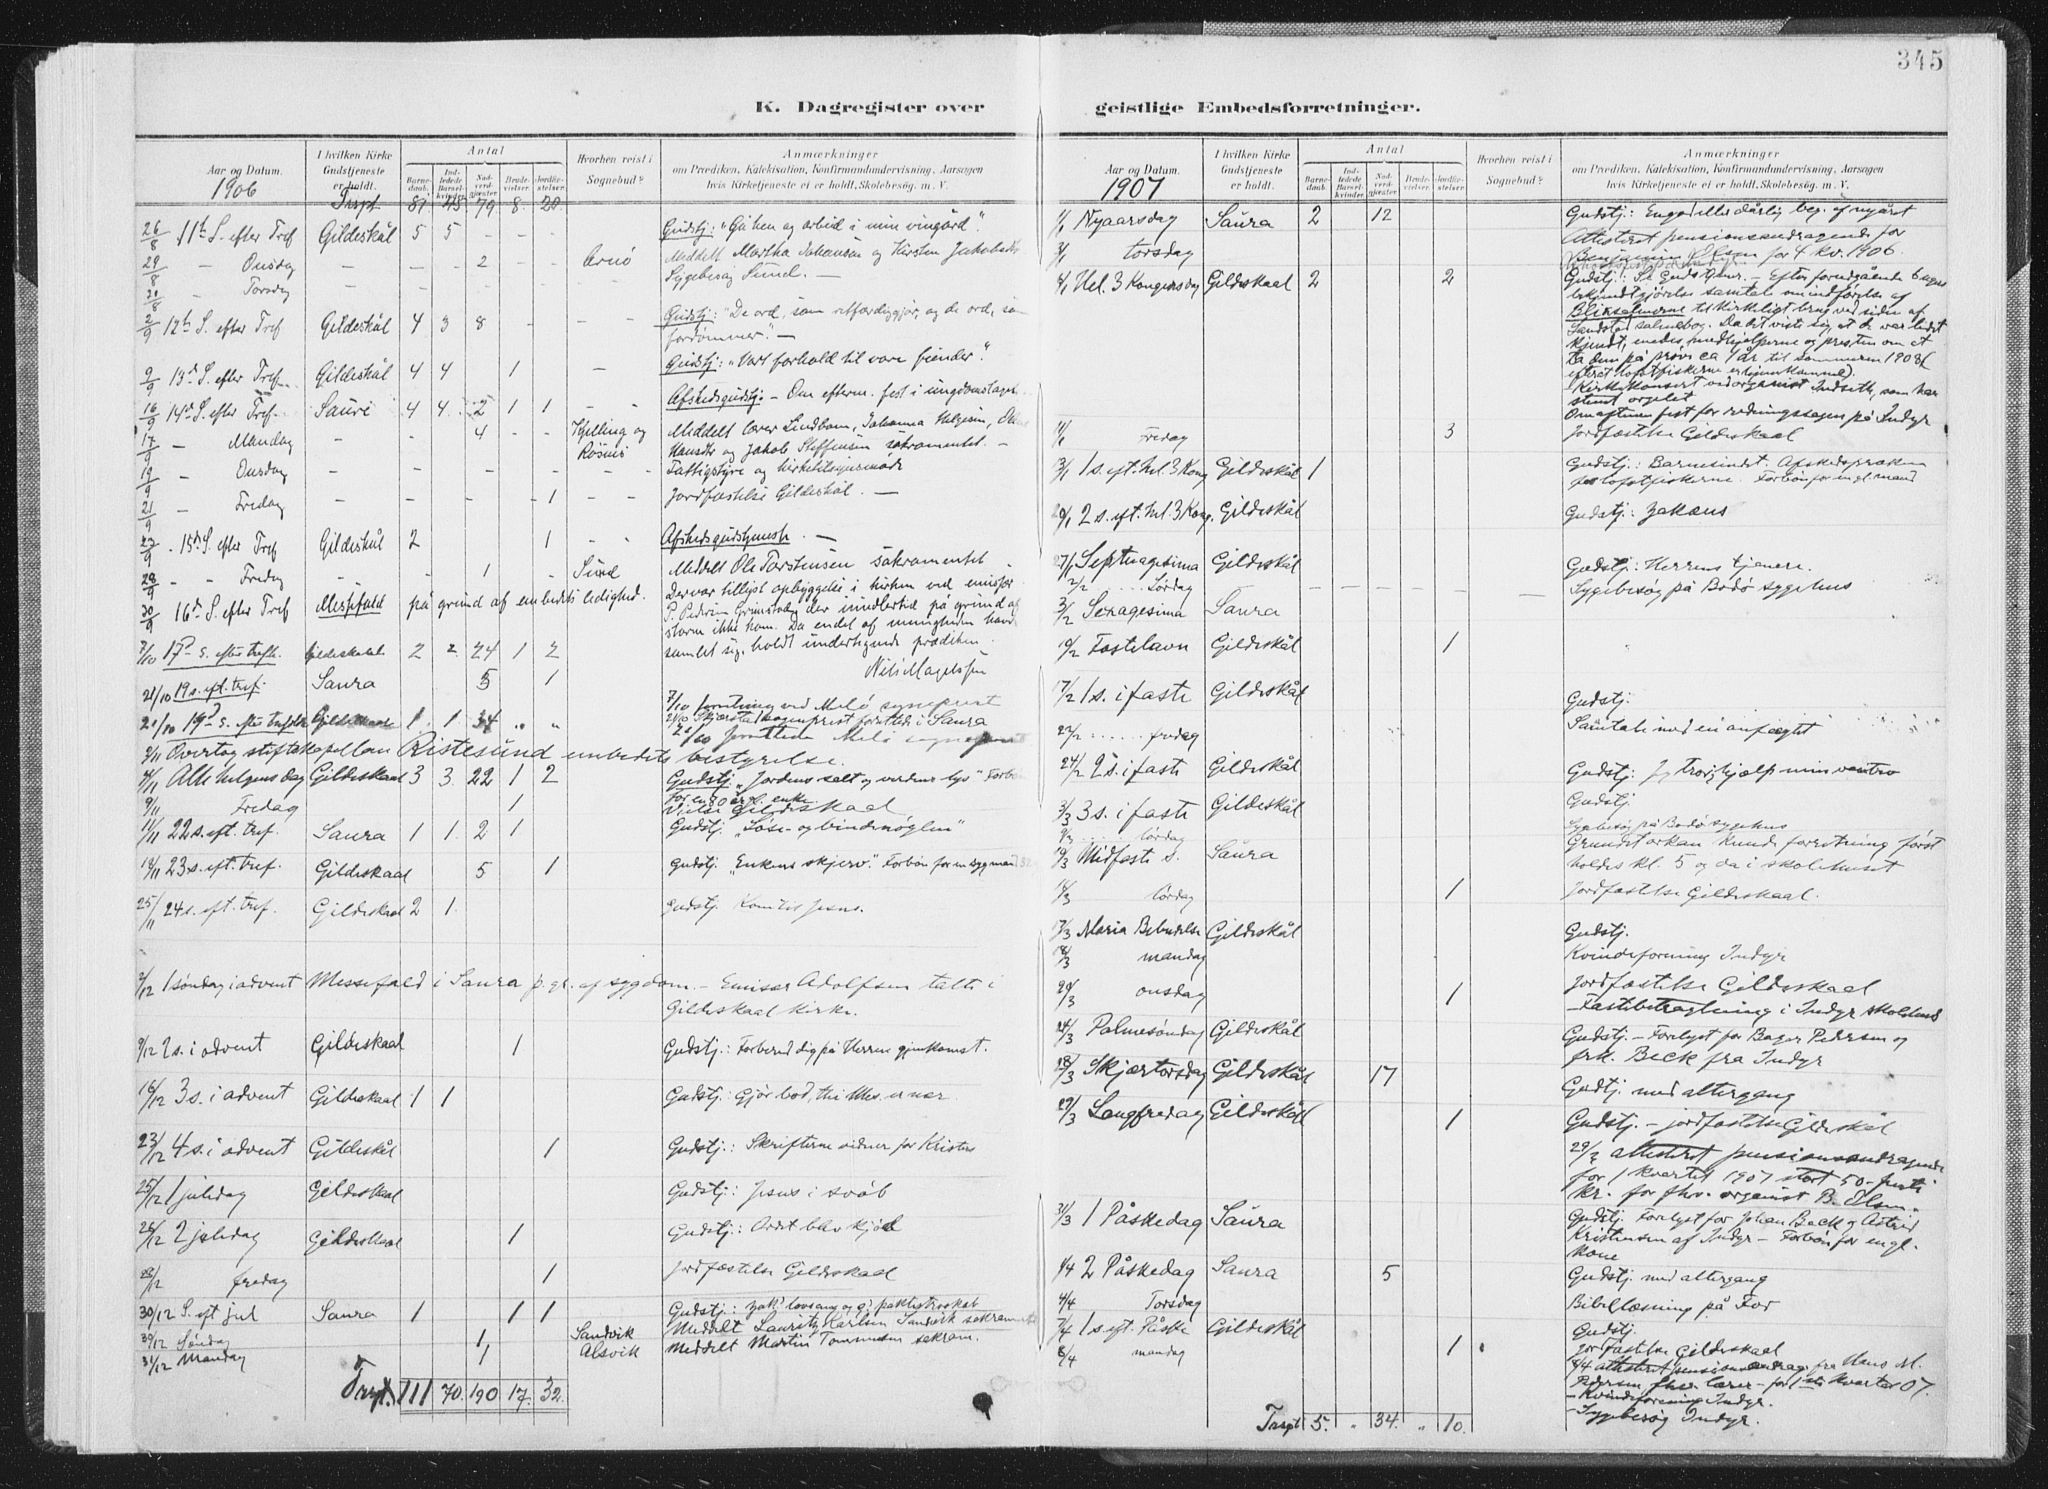 345
K. Dagregister over
geistlige Embedsforretninger.
Aar og Datum.
1906
I hvilken Kirke Gudstjeneste er holdt.
Antal
Barne-daab. Ind-ledede Barsel-kvinder. Nad-verd-gjæster. Brude-vielser. Jordfæ-stelser.
Hvorhen reist i Sognebud?
Anmærkninger
om Prædiken, Katekisation, Konfirmandundervisning, Aarsagen
hvis Kirketjeneste ei er holdt, Skolebesøg. m. V.
Trspt. 81 45 79 8 20
26/8 11te S. efter Tref Gildeskål 5 5 - - - Gudstj: "Gå hen og arbeid i min vingård".
29/8 - Onsdag - - - 2 - - Arnö Meddelt Martha Johansen og Kirsten
Sygebesøg Sund. -
- Torsdag - - - - - -
2/9 12te S. efter Tref Gildeskål 4 3 8 - - - Gudstj: "De ord, som retfærdiggjør, og de ord, som
fordømmer". -
9/9 13de S. efter Tref. Gildeskål 4 4 1 - Gudstj: "Vort forhold til vore fiender".
16/9 14de S. efter Tref. Saura 4 4 2 1 1 - Afskedsgudstj. - Om efterm. fest i ungdomslaget.
17/9 - Mandag - - - 4 - - Kjelling og Meddelt lærer Lindbom, Johanna Helgesen,
og Jakob Steffensen sakramentet. -
19/9 - Onsdag - - - - - - Fattigstyre og kirketilsynsmøde
21/9 - Fredag - - - - 1 - Jordfæstelse Gildeskål. -
23/9 15de S. efter Tref Gildeskål 2 1 - Afskedsgudstjeneste. -
28/9 - - Fredag - - 1 - Sund Meddelt Ole Torstensen sakramentet -
30/9 16de S. efter Tref Messefald på grund af embedets ledighed. Der var tilligst opbyggelse i kirken ved emissær
P. Pedersen Grimstad, der imidlertid på grund af
storm ikke kom. Da endel af menigheden havde
samlet sig, holdt undertegnede prædiken.
Nils Magelssen
7/10 17de s. efter trefh. Gildeskaal 2 2 24 1 2
21/10 19 s. eft. tref. Saura 5 1 7/10 forretning ved Melö sogneprest
21/10 19de s. efter trefoldh Gildeskaal 1 1 34 " " 21/10 Skjerstad sogneprest forrettede i Saura
forrettede Melö sogneprest
2/11 Overtog stiftskapellan Ristesund embedets bestyrelse.
4/11 Alle Helgens dag Gildeskaal 3 3 22 1 2 Gudstj. "Jordens salt og verdens lys" Forbøn
for en 80 årg. enke
9/11 Fredag 1 Vielse Gildeskaal
11/11 22 s. eft. tref. Saura 1 1 2 1 Gudstj. "Løse- og bindenøglen"
18/11 23 s. eft. tref. Gildeskaal 5 1 Gudstj. "Enkens skjerv." Forbøn for en syg mand
25/11 24 s. eft. tref. Gildeskaal 2 1 Gudstj. Kom til Jesus.
2/12 1 søndag i advent Messefald i Saura p. gr. af sygdom. - Emisær Adolfsen talte i
Gildeskaal kirke.
9/12 2 s. i advent Gildeskaal 1 Gudstj.: Forbered dig på Herrens gjenkomst.
16/12 3 s. i advent Gildeskaal 1 1 Gudstj.: Gjør bod, thi Mes. er nær.
23/12 4 s. i advent Gildeskål 1 Gudstj.: Skrifterne vidner for Kristus
25/12 1 juledag Gildeskaal Gudstj.: Jesus i svøb
26/12 2 juledag Gildeskaal 1 Gudstj.: Ordet blev kjød
28/12 fredag 1 Jordfæstelse Gildeskaal
30/12 S. eft jul Saura 1 1 1 Gudstj.: Zak. lovsang og
30/12 Søndag 1 Sandvik Meddelt Lauritz Karlsen Sandvik sakramentet
31/12 Mandag 1 Alsvik Meddelt Martin Tommesen sakram.
Trspt. 111 70. 190 17. 32.
Aar og Datum.
1907
I hvilken Kirke Gudstjeneste er holdt.
Antal
Barne-daab. Ind-ledede Barsel-kvinder. Nad-verd-gjæster. Brude-vielser. Jordfæ-stelser.
Hvorhen reist i Sognebud?
Anmærkninger
om Prædiken, Katekisation, Konfirmandundervisning, Aarsagen
hvis Kirketjeneste ei er holdt, Skolebesøg. m. V.
1/1 Nyaarsdag Saura 2 12 Gudstj.: En god eller dårlig beg. af nyåret
3/1 torsdag Attesteret pensionsandragende for
Benjamin Olsen for 4 kv. 1906.
6/1 Hel. 3 Kongersdag Gildeskaal 2 2 Gudstj.: Se Guds - Efter forudgående 6 ugers
bekjendtgjørelse samtale om indførelse af
Blixsalmerne til kirkeligt brug ved siden af
Landstad salmebog. Da det viste sig, at de var lidet
kjendt, enedes medhjelperne og presten om at
ta dem på prøve ca 1 år til sommeren 1908 (
efterat lofotfiskerne er hjemkomne).
Kirkekonsert ved organist Indseth, som har
stemt orgelet
Om aftenen fest for redningssagen på Indyr
11/1 Fredag 3 Jordfæstelse Gildeskaal
13/1 1 s. eft. hel. 3 Kong Gildeskål 1 Gudstj.: Barnesindet. Afskedspræken
for lofotfiskerne. Forbøn for en gl. mand
20/1 2 s. eft. hel. 3 Kong. Gildeskål Gudstj: Zakæus
27/1 Septuagesima Gildeskål Gudstj: Herrens tjenere.
2/2 ..... Lørdag - - - - - - Sygebesøg på Bodø sygehus
3/2 Sexagesima Saura
10/2 Fastelavn Gildeskål 1
17/2 1 s. i faste Gildeskål Gudstj.
22/2 ...... fredag Samtale med en anfægtet
24/2 2 s. i faste Gildeskål Gudstj: Jeg tror, hjælp min vantro
3/3 3 s. i faste Gildeskål Gudstj.
9/3 ..... lørdag Sygebesøg på Bodø sygehus
10/3 Midfaste s. Saura Grundet orkan kunde forretning først
holdes kl. 5 og da i skolehuset
16/3 lørdag 1 Jordfæstelse Gildeskaal.
17/3 Maria Bebudelse Gildeskål Gudstj.
18/3 mandag Kvindeforening Indyr
20/3 onsdag 1 Jordfæstelse Gildeskaal
- Fastebetragtning i Indyr skolehus
24/3 Palmesøndag Gildeskål Gudstj. - Forelyst for Bager Pedersen og
frk. Beck fra Indyr
28/3 Skjærtorsdag Gildeskål 17 Gudstj. med altergang
29/3 Langfredag Gildeskål 1 Gudstj. - jordfæstelse Gildeskål
29/3 attesteret pensionsandragende
for 1 kvartal 1907 stort 50 - femti
kr. for fhv. organist B. Olsen.
31/3 1 Påskedag Saura Gudstj. Forelyst for Johan Beck og Astrid
Kristensen af Indyr - Forbøn for en gl.
kone
1/4 2 Påskedag Saura 5 Gudstj. med altergang
4/4 Torsdag Bibellæsning på For
7/4 1 s. eft. Påske Gildeskål Gudstj.
8/4 mandag 1 Jordfæstelse Gildeskaal
8/4 attesteret pensionsandrag. fra Hans M.
Pedersen fhv. lærer - for 1ste kvartal 07.
- Kvindeforening Indyr.
- Sygebesøg Indyr.
Trspt 5. " 34. " 10.